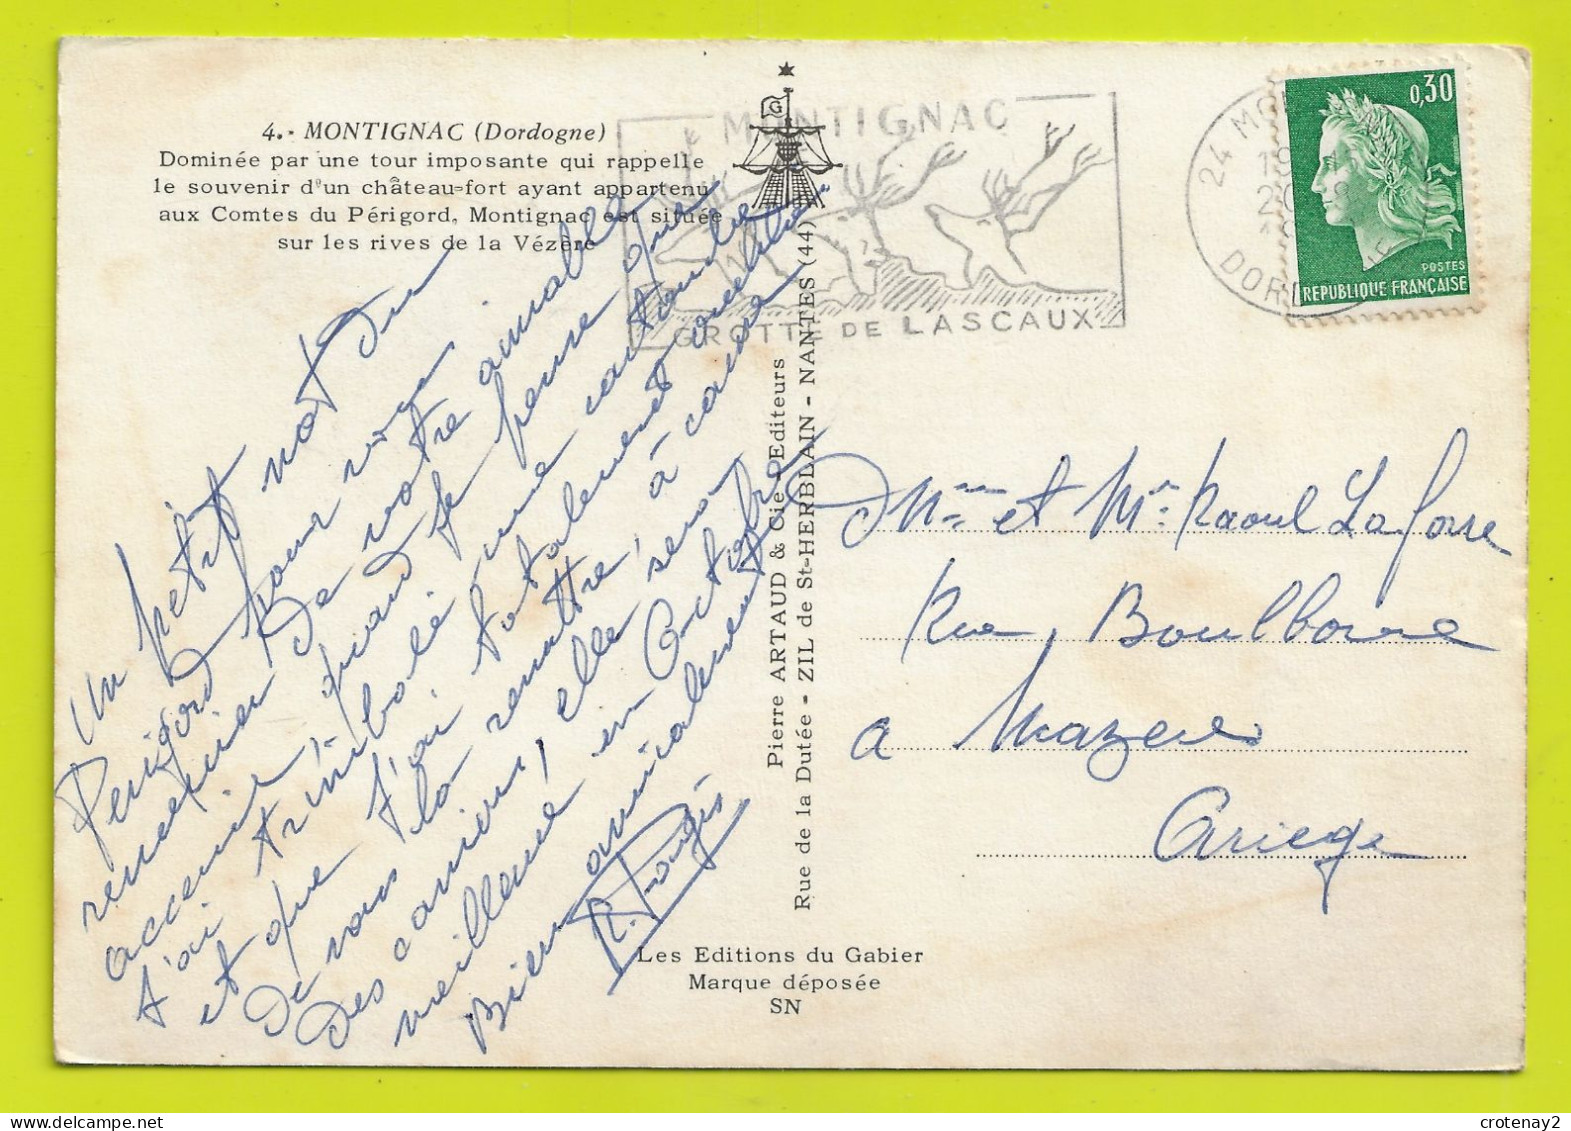 4.- MONTIGNAC (Dordogne)
Dominée par une tour imposante qui rappelle
le souvenir d'un château-fort ayant appartenu
aux Comtes du Périgord, Montignac est située
sur les rives de la Vézère
G
MONTIGNAC
GROTTE DE LASCAUX
24 MO
19
20
DOR
0,30
POSTES
REPUBLIQUE FRANÇAISE
Un petit mot du
Périgord pour vous
remercier de votre aimable
accueil, quand je pense que
j'ai trimbalé une
et que j'ai totalement oublié
de vous la remettre, à cause
des camions, elle sera
meilleure en Octobre
Bien amicalement
Pierre ARTAUD & Cie - Editeurs
Rue de la Dutée - ZIL de St-HERBLAIN - NANTES (44)
Mme et Mr Raoul Laforre
Rue Boulbonne
a Mazeres
Ariege
Les Editions du Gabier
Marque déposée
SN
crotenay2